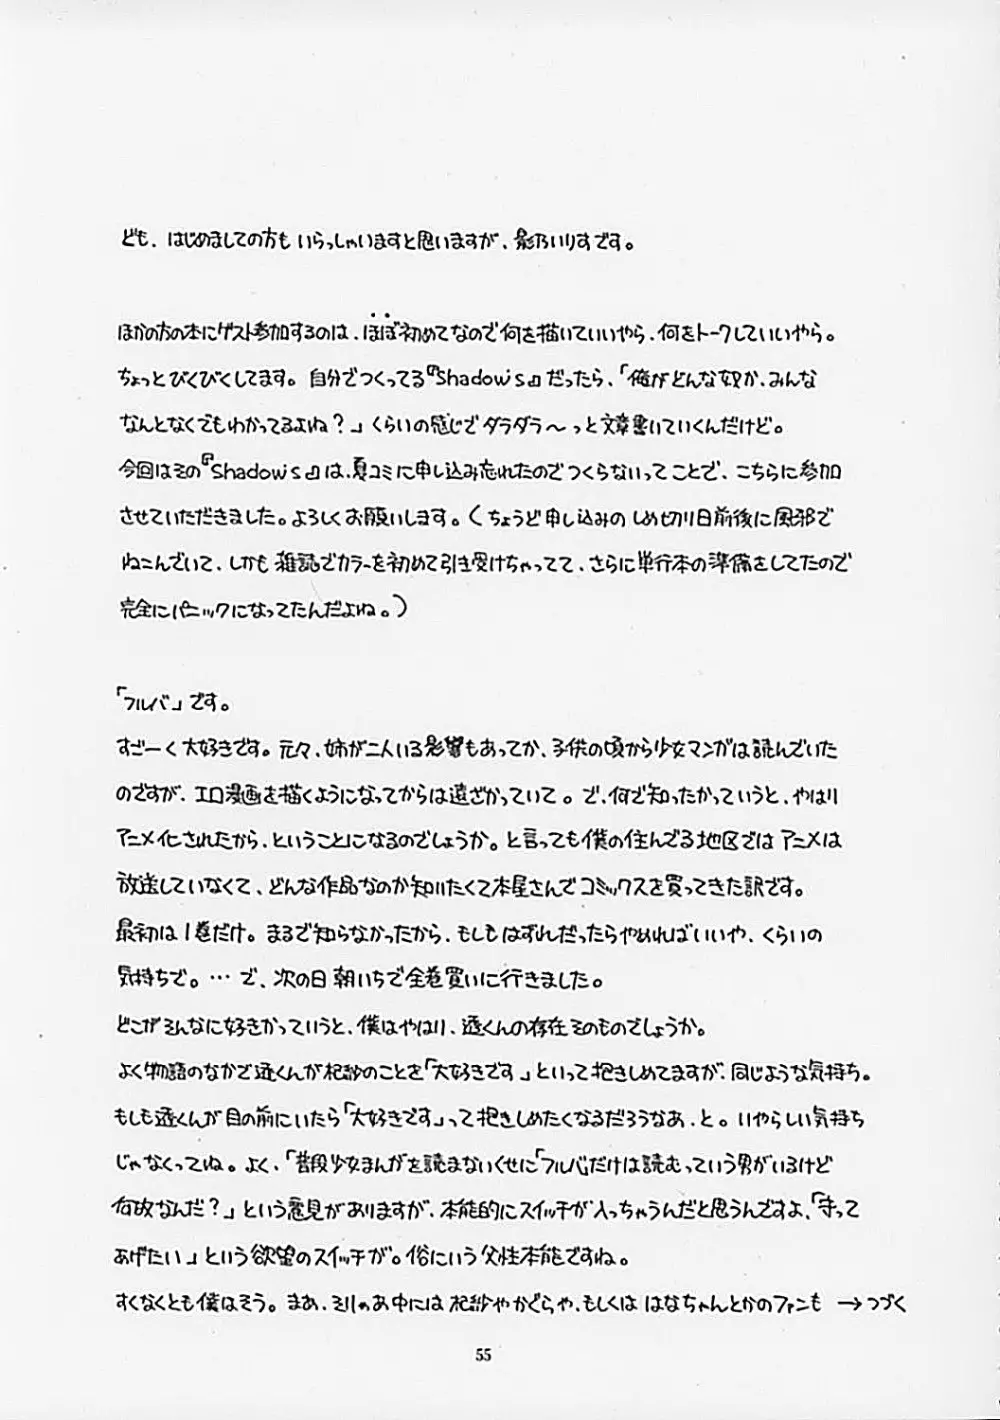 ども、はじめましての方もいらっしゃいますと思いますが、影乃いりすです。
ほかの方の本にゲスト参加するのは、ほぼ初めてなので何を描いていいやら、何をトークしていいやら。
ちょっとびくびくしてます。自分でつくってる『Shadow's』だったら、「俺がどんな奴か、みんな
なんとなくでもわかってるよね？」くらいの感じでダラダラ〜っと文章書いていくんだけど。
今回はその『Shadow's』は、夏コミに申し込み忘れたのでつくらないってことで、こちらに参加
させていただきました。よろしくお願いします。（ちょうど申し込みのしめ切り日前後に風邪で
ねこんでいて、しかも雑誌でカラーを初めて引き受けちゃってて、さらに単行本の準備をしてたので
完全にパニックになってたんだよね。）
「フルバ」です。
すごーく大好きです。元々、姉が二人いる影響もあってか、子供の頃から少女マンガは読んでいた
のですが、エロ漫画を描くようになってからは遠ざかっていて。で、何で知ったかっていうと、やはり
アニメ化されたから、ということになるのでしょうか。と言っても僕の住んでる地区ではアニメは
放送していなくて、どんな作品なのか知りたくて本屋さんでコミックスを買ってきた訳です。
最初は1巻だけ。まるで知らなかったから、もしもはずれだったらやめればいいや、くらいの
気持ちで。…で、次の日朝いちで全巻買いに行きました。
どこがそんなに好きかっていうと、僕はやはり、透くんの存在そのものでしょうか。
よく物語のなかで透くんが杞紗のことを「大好きです」といって抱きしめてますが、同じような気持ち。
もしも透くんが目の前にいたら「大好きです」って抱きしめたくなるだろうなあ、と。いやらしい気持ち
じゃなくってね。よく、「普段少女まんがを読まないくせに「フルバ」だけは読むっていう男がいるけど
何故なんだ？」という意見がありますが、本能的にスイッチが入っちゃうんだと思うんですよ、「守って
あげたい」という欲望のスイッチが。俗にいう父性本能ですね。
すくなくとも僕はそう。まあ、そりゃあ中には杞紗やかぐらや、もしくははなちゃんとかのファンも →つづく
55